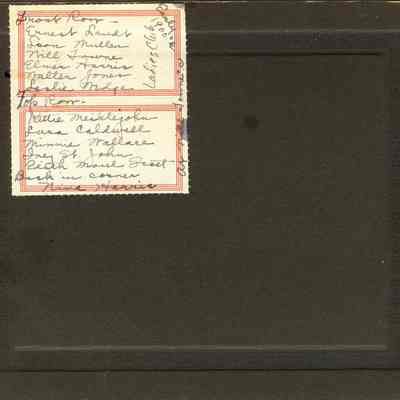 Front Row -
Ernest Landt
Leon Muller
Will Towne
Elmer Harris
Walter Jones
Leslie Hodge
Top Row -
Kittie Meiklejohn
Lura Caldwell
Minnie Wallace
Inez St. John
Edith Maud
Back in corner
Nina Harris
Ladies Club